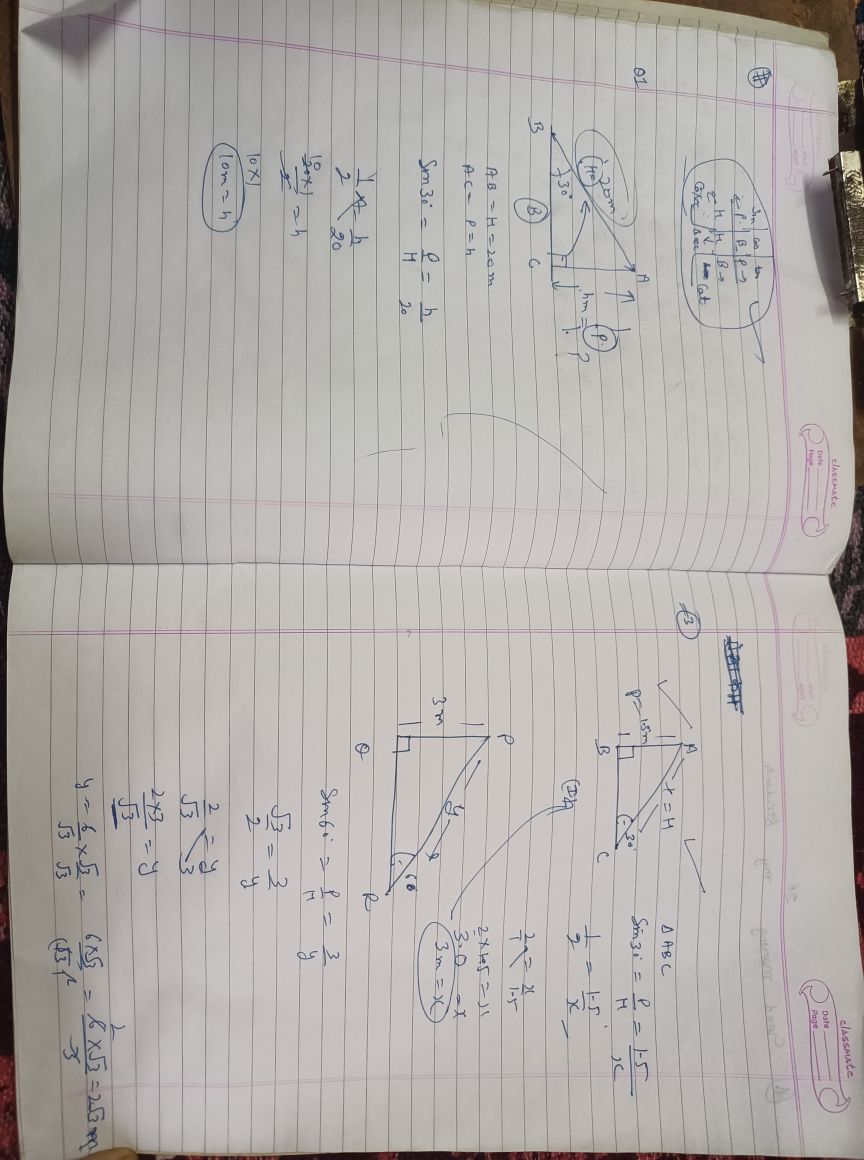 classmate
Date
Page
Sin | Cos | tan
P | B | P
H | H | B
Cosec | Sec | Cot
Q1
A
20m
(H)
30°
B
B
C
hm = ?
P
AB = H = 20m
AC = P = h
Sin30° = P/H = h/20
1/2 = h/20
10
20×1/2 = h
10×1
10m = h
classmate
Date
Page
3
A
P = 1.5m
x = H
30°
B
C
ΔABC
Sin30° = P/H = 1.5/x
1/2 = 1.5/x
2/1 = x/1.5
2×1.5 = x
3.0 = x
3m = x
P
3m
y
60°
Q
R
Sin60° = P/H = 3/y
√3/2 = 3/y
2/√3 = y/3
2×3/√3 = y
y = 6/√3 × √3/√3 = 6×√3/(√3)² = 6×√3/3 = 2√3